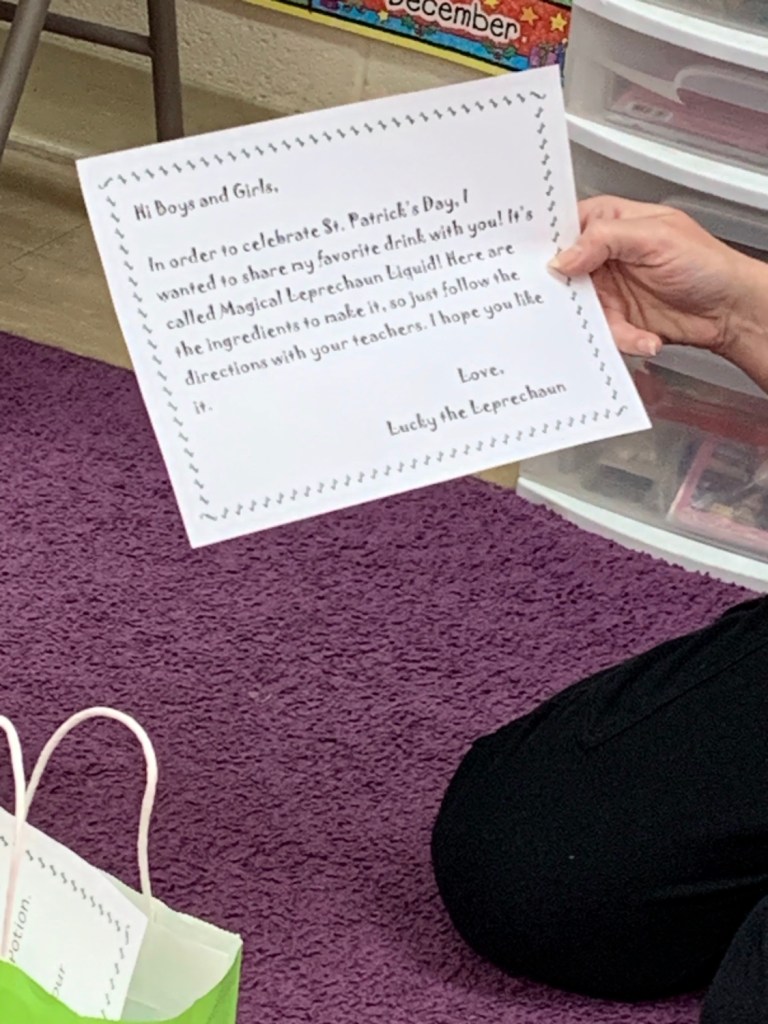 December
Hi Boys and Girls,
In order to celebrate St. Patrick's Day, I
wanted to share my favorite drink with you! It's
called Magical Leprechaun Liquid! Here are
the ingredients to make it, so just follow the
directions with your teachers. I hope you like
it.
Love,
Lucky the Leprechaun